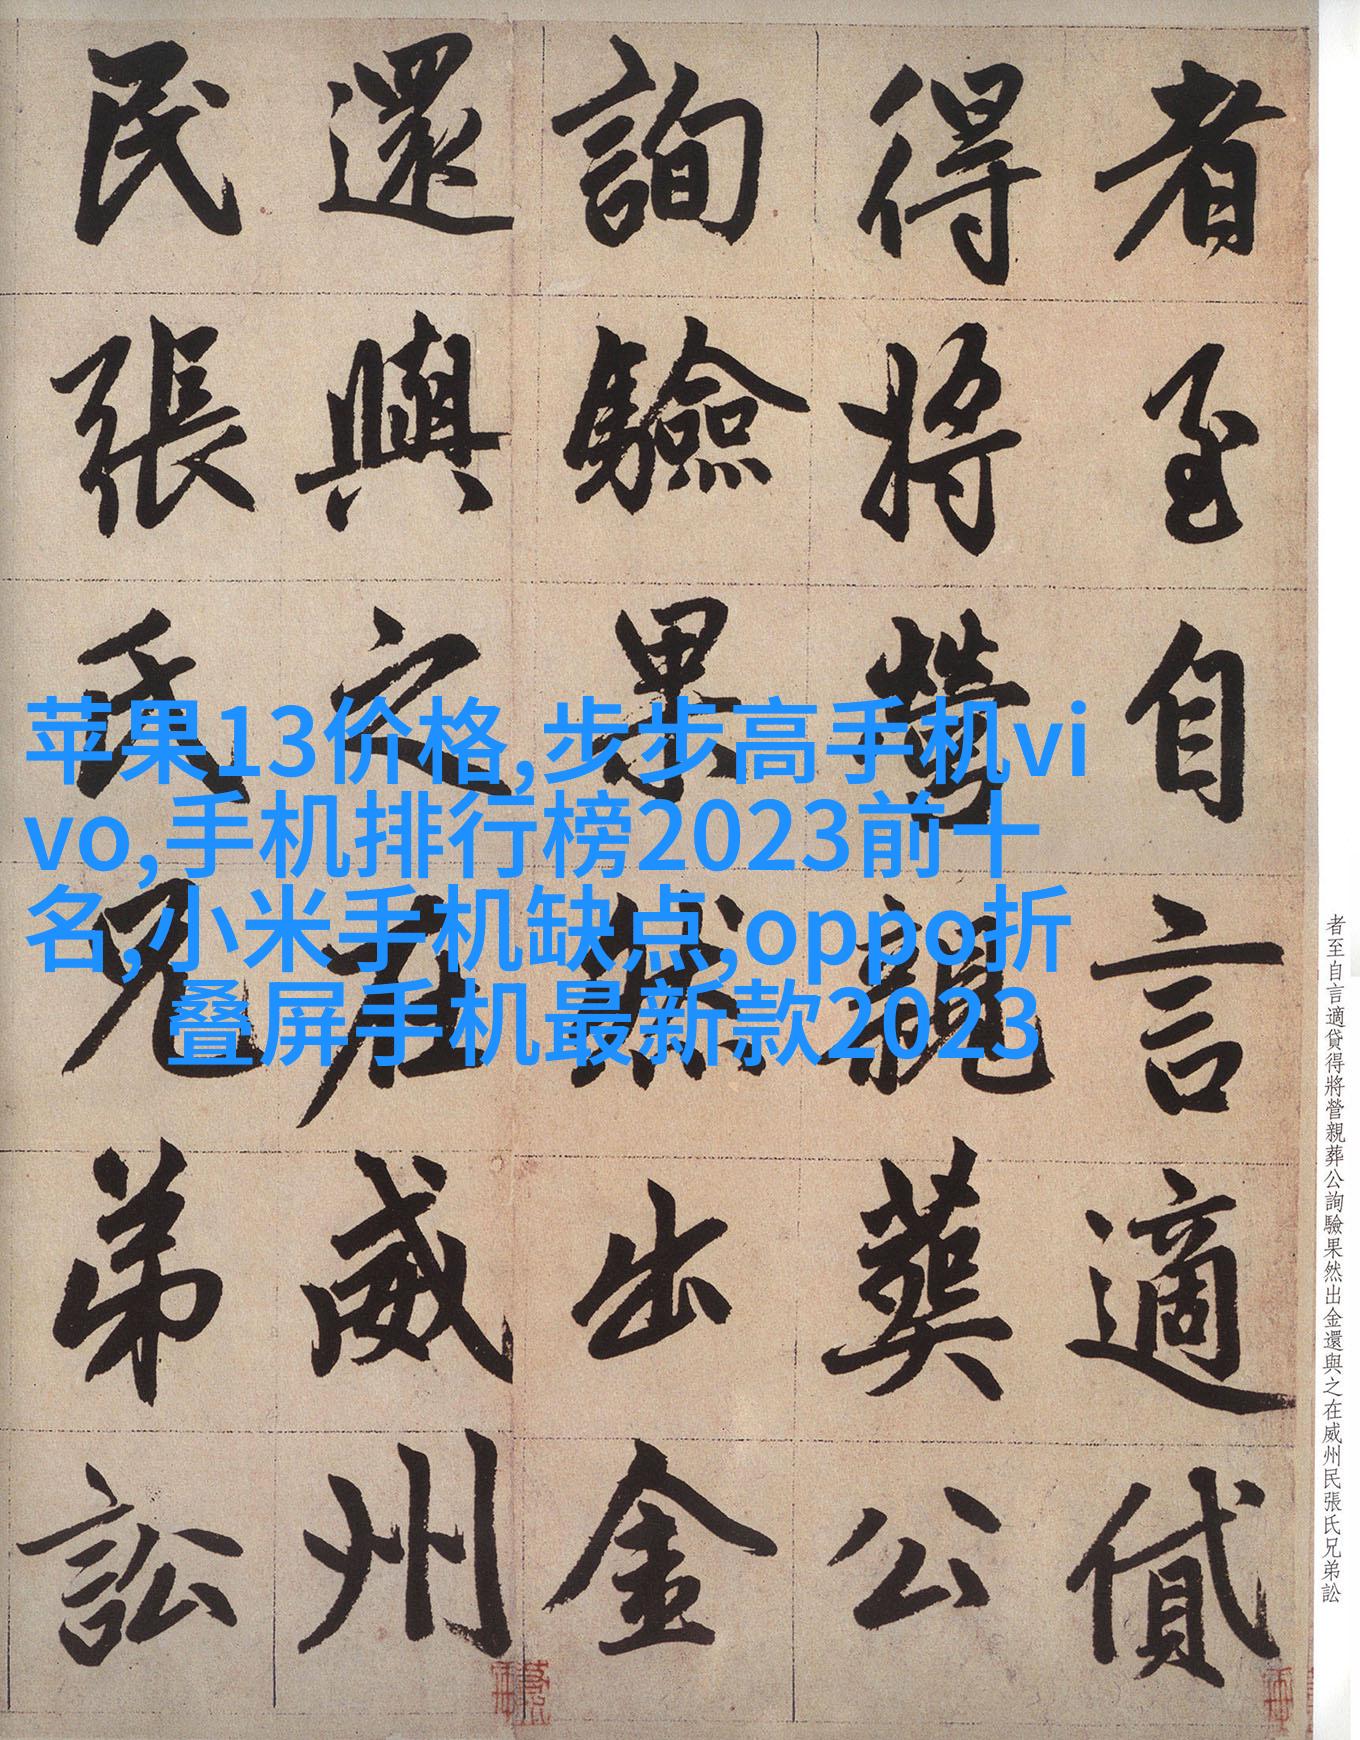 者至自言適貸
得將營親葬公
詢驗果然出金
還與之在威州
民張氏兄弟訟
苹果13价格,步步高手机vi
vo,手机排行榜2023前十
名,小米手机缺点,oppo折
叠屏手机最新款2023
者至自言適貸得將營親葬公詢驗果然出金還與之在威州民張氏兄弟訟